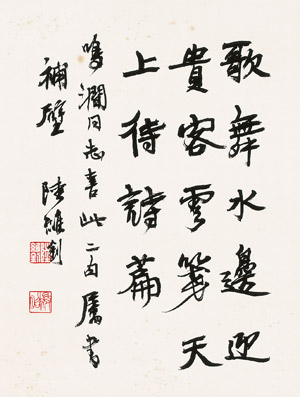 歌舞水邊迎
貴客雲箋天
上待詩篇
鳴瀾同志喜此二句屬書
補壁
陸維釗